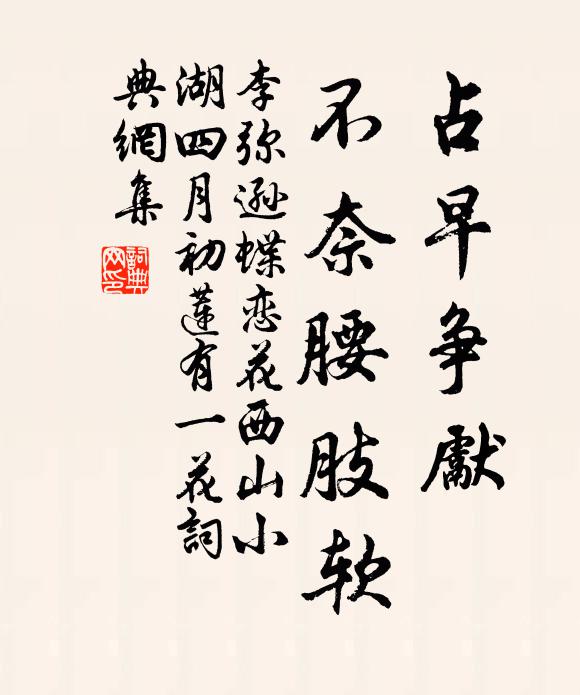 占早争獻
不奈腰肢软
李弥遜蝶恋花西山小
湖四月初蓮有一花詞
典網集
詞典
网印